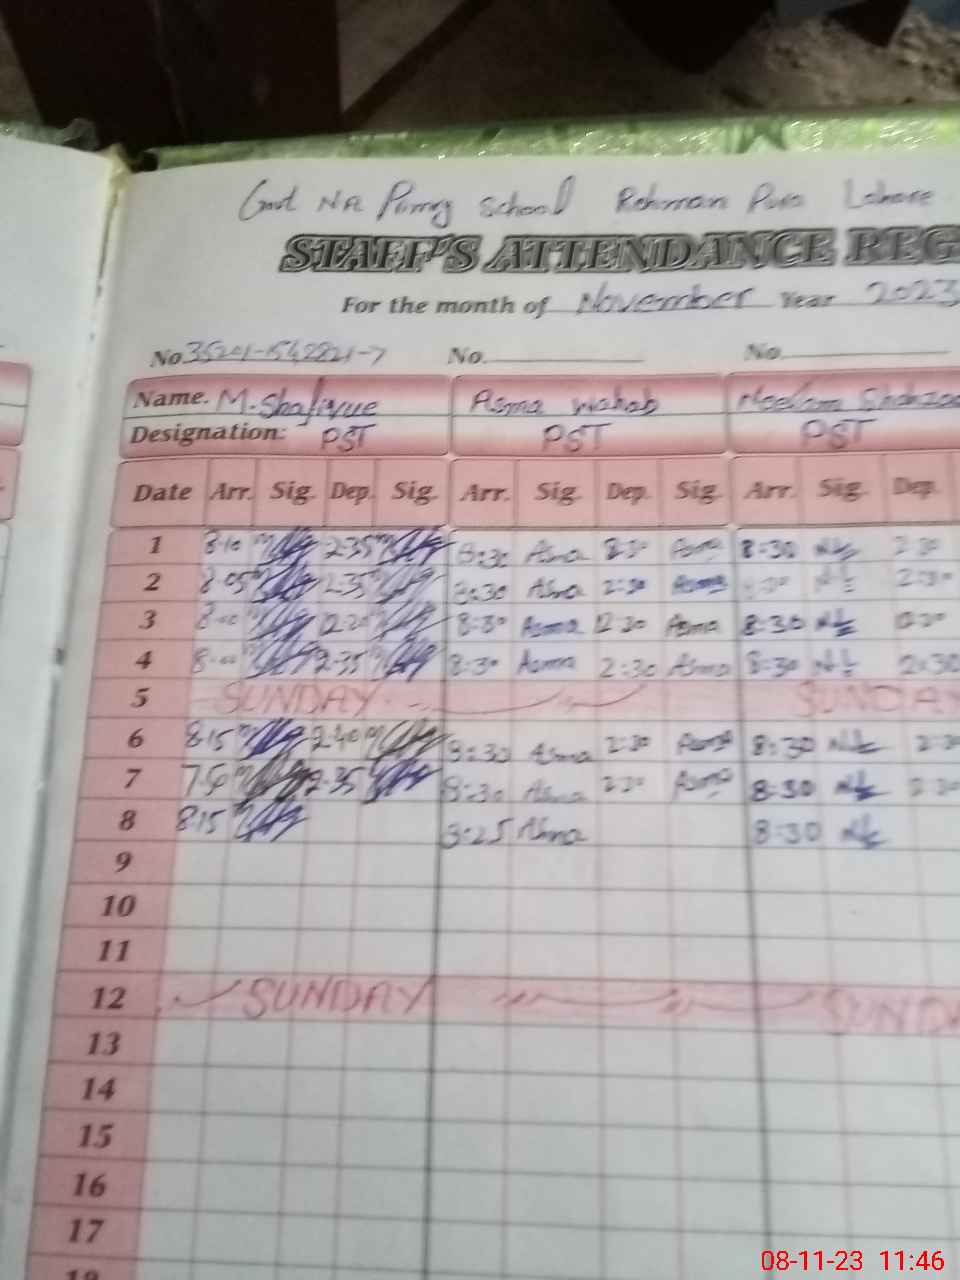 Govt School Rehman Pura Lahore
STAFF'S ATTENDANCE REG
For the month of November Year 2023
No. No. No.
Name. M. Asma Wahab Neelam
Designation: PST PST PST
Date Arr. Sig. Dep. Sig. Arr. Sig. Dep. Sig. Arr. Sig. Dep.
1 8:10 2:35 8:30 Asma 2:30 Asma 8:30 2:30
2 8:05 2:35 8:30 Asma 2:30 Asma 2:30
3 8:00 12:30 8:30 Asma 12:30 Asma 8:30
4 8:00 2:35 8:30 Asma 2:30 Asma 8:30 2:30
5 SUNDAY SUNDAY
6 8:15 2:40 8:30 Asma 2:30 Asma 8:30 2:30
7 7:50 2:35 8:30 Asma 2:30 Asma 8:30 2:30
8 8:15 Asma 8:30
9
10
11
12 SUNDAY SUNDA
13
14
15
16
17
18
08-11-23 11:46